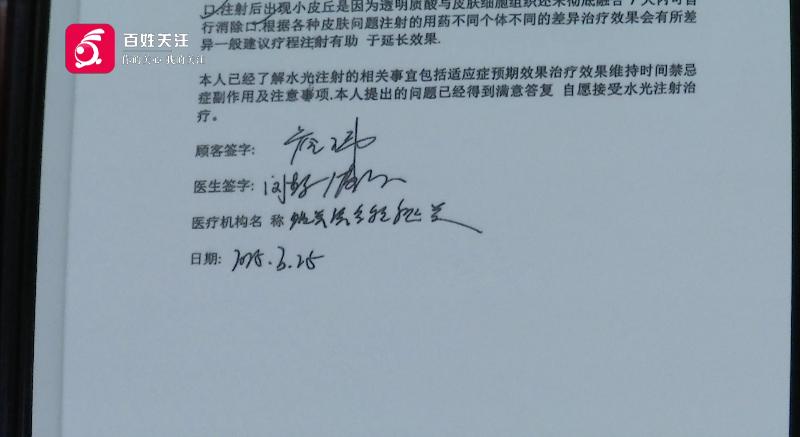 口.注射后出现小皮丘是因为透明质酸与皮肤细胞组织还未彻底融合7天内可自
百姓关注
行消除口.根据各种皮肤问题注射的用药不同个体不同的差异治疗效果会有所差
你的关心 我的关注
异一般建议疗程注射有助 于延长效果.
本人已经了解水光注射的相关事宜包括适应症预期效果治疗效果维持时间禁忌
症副作用及注意事项.本人提出的问题已经得到满意答复 自愿接受水光注射治
疗。
顾客签字:
医生签字:
医疗机构名 称
日期: 2025.3.25